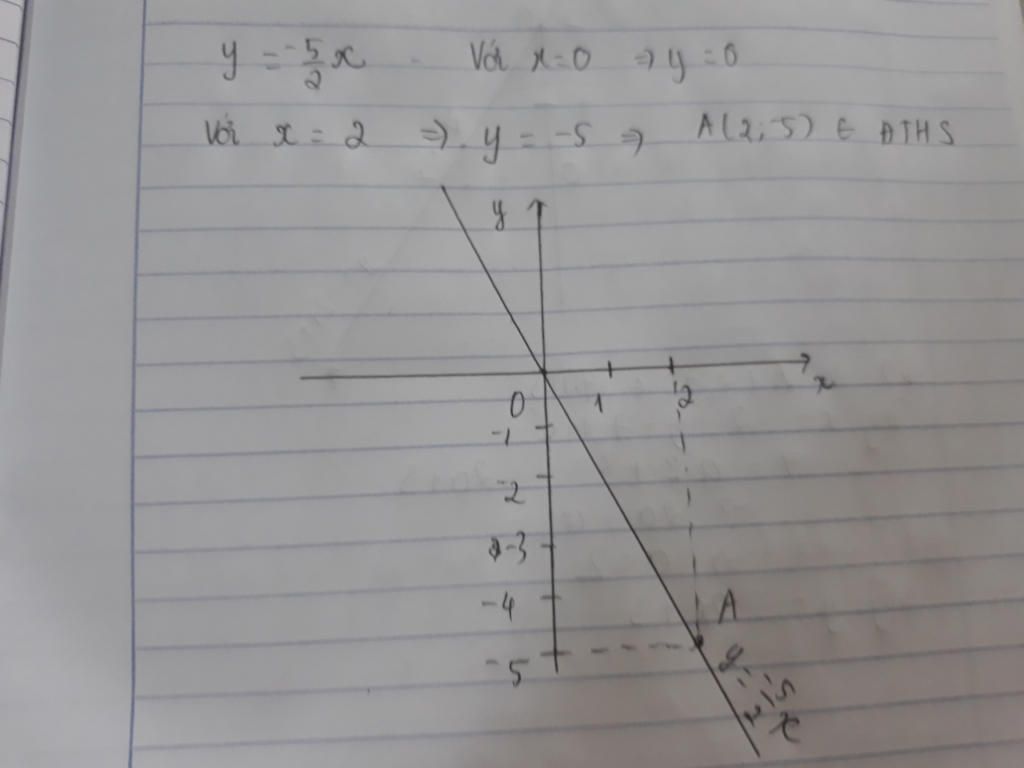 y = -5/2 x Với x=0 ⇒ y=0
Với x = 2 ⇒ y = -5 ⇒ A(2;-5) ∈ ĐTHS
y
x
0 1 2
-1
-2
-3
-4 A
-5
y = -5/2 x